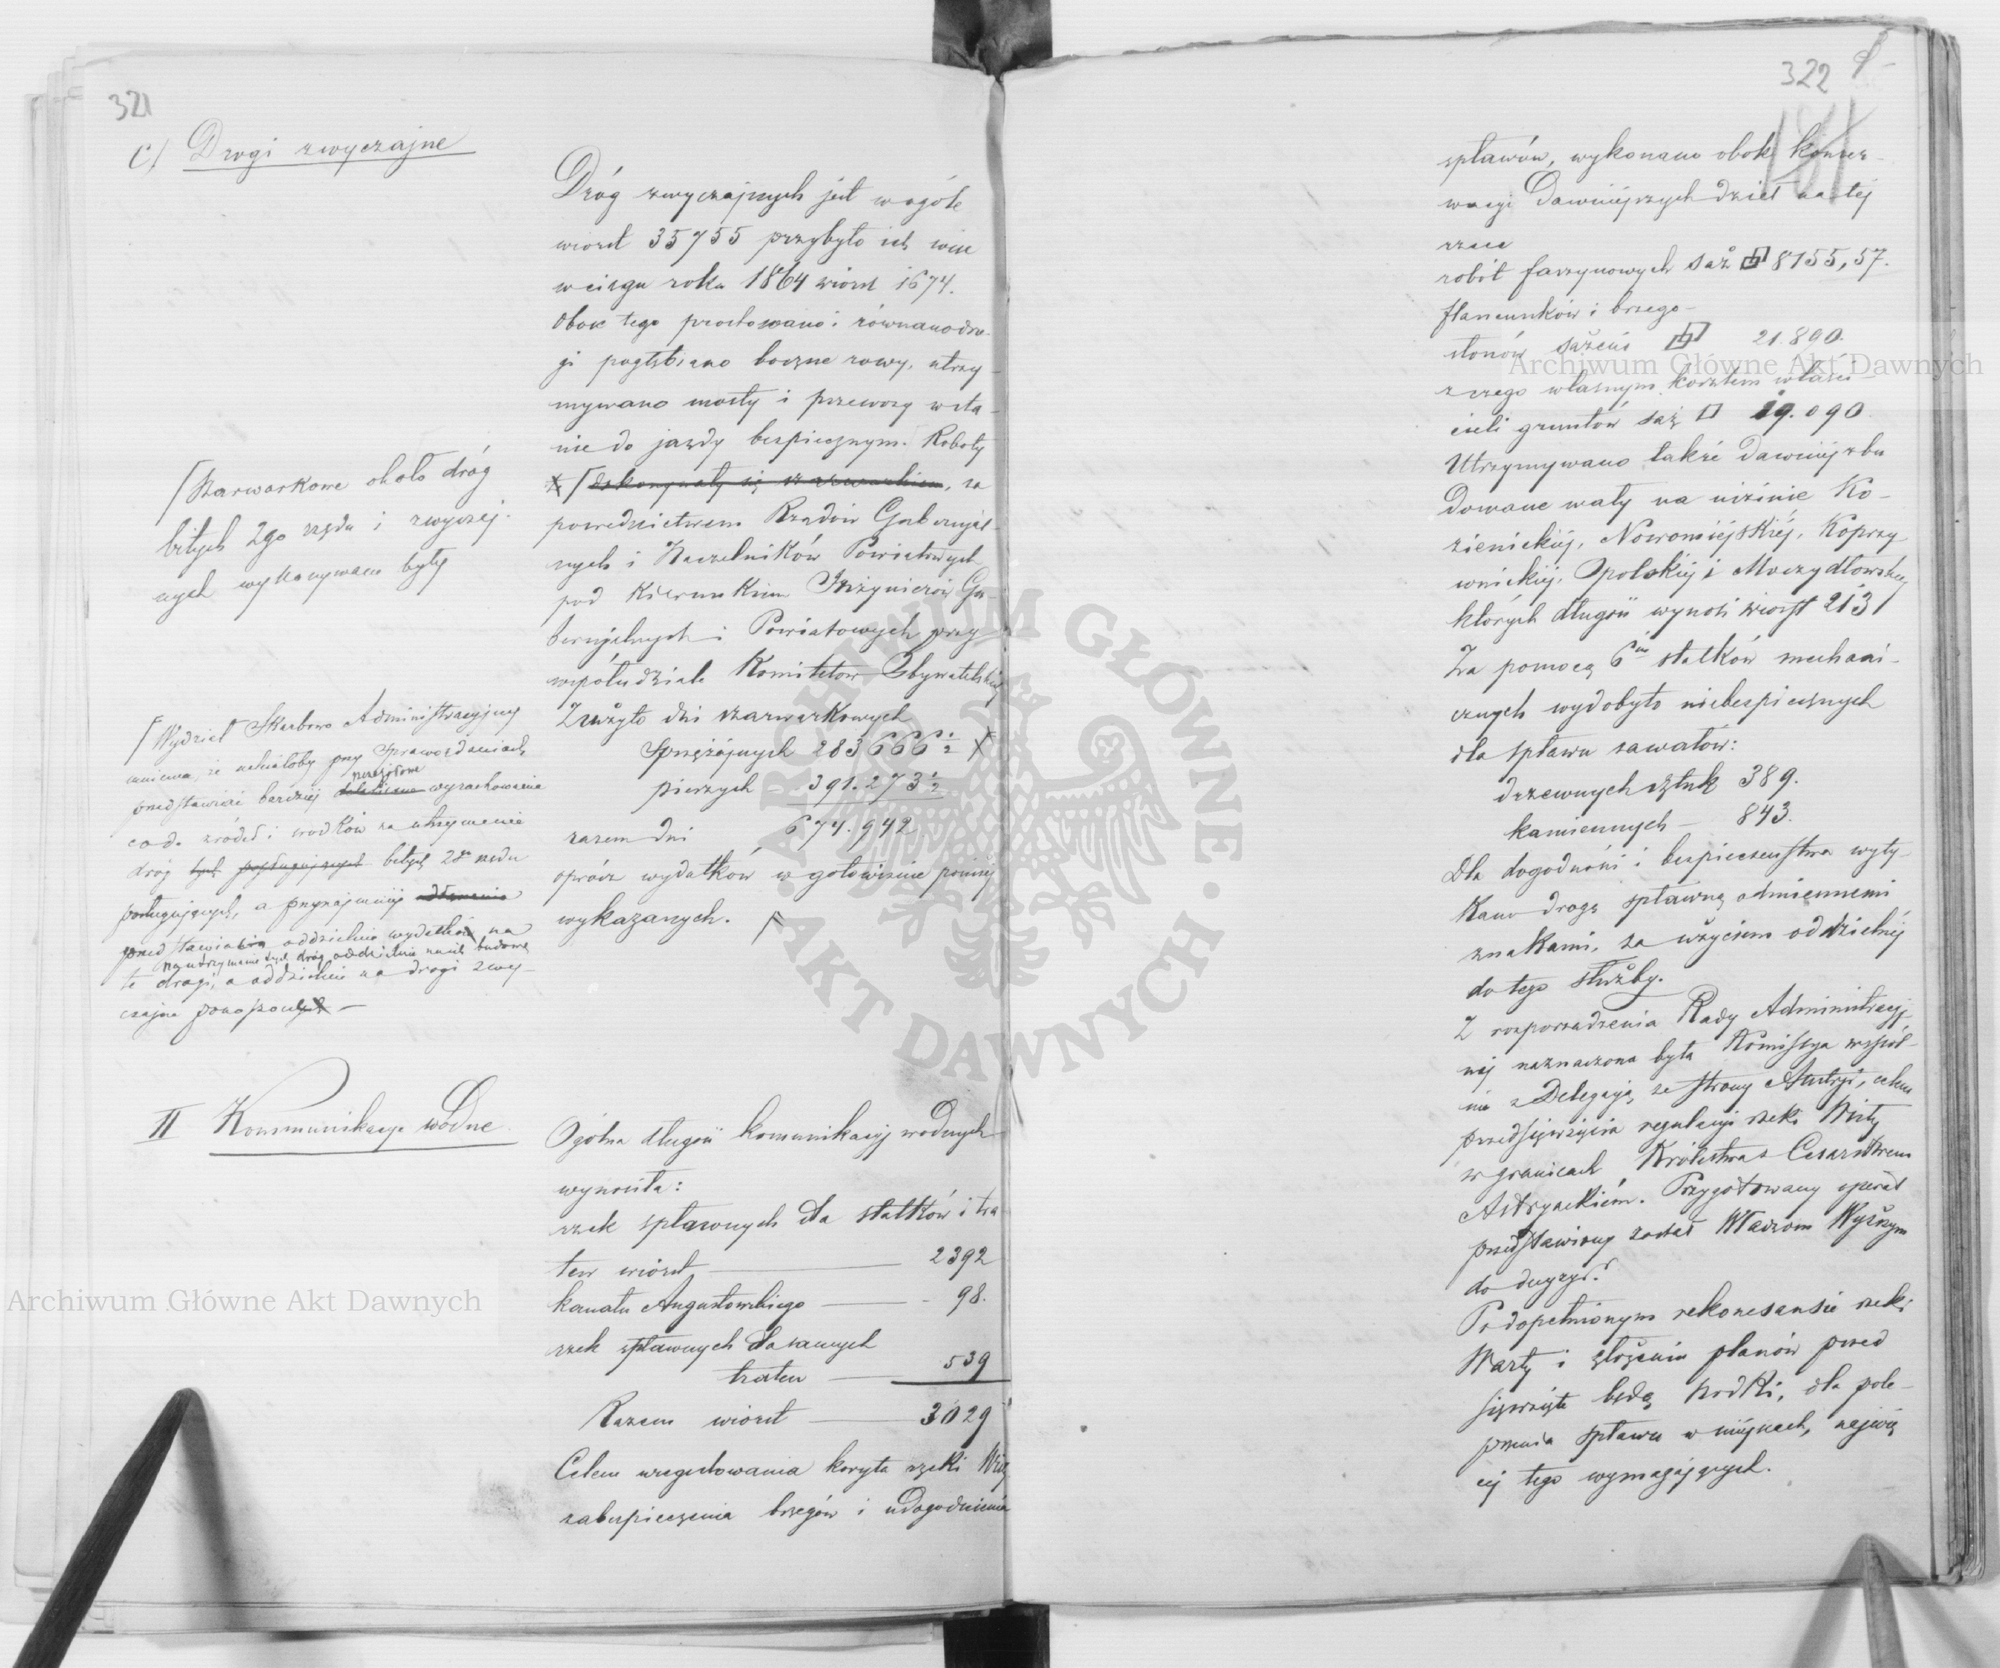 321
C/ Drogi zwyczajne
Dróg zwyczajnych jest wogóle
wiorst 35755 przybyło ich więc
wciągu roku 1864 wiorst 1674.
Obok tego prostowano i równano dro-
gi pogłębiano boczne rowy, utrzy-
mywano mosty i przewozy w sta-
nie do jazdy bezpiecznym. Roboty
dokonywały się szarwarkiem, za
pośrednictwem Rządów Gubernijal-
nych i Naczelników Powiatowych
pod kierunkiem Inżynierów Gu-
bernijalnych i Powiatowych przy
współudziale Komitetów Obywatelskich
Zużyto dni szarwarkowych
sprzężajnych 283666½
pieszych 391.273½
razem dni 674.942
oprócz wydatków w gotowiźnie poniżej
wykazanych.
Szarwarkowe około dróg
bitych 2go rzędu i zwyczaj-
nych wykonywane były
Wydział Skarbowo Administracyjny
mniema, że należałoby przy Sprawozdaniach
przedstawiać bardziej szczegółowe wyrachowanie
co do źródeł i środków na utrzymanie
dróg tych posługujących bitych 2go rzędu
posługujących, a przynajmniej
przedstawiać oddzielnie wydatki na
na utrzymanie tych dróg oddzielnie na ich budowę
te drogi, a oddzielnie na drogi zwy-
czajne ponoszone —
II Kommunikacye Wodne.
Ogólna długość komunikacyj wodnych
wynosiła:
rzek spławnych dla statków i tra
tew wiorst — 2392
kanału Augustowskiego — 98.
rzek spławnych dla samych
tratew — 539
Razem wiorst 3029
Celem uregulowania koryta rzeki Wisły
zabezpieczenia brzegów i udogodnienia
322
181
spławów, wykonano obok konser-
wacyi Dawniejszych dzieł na tej
rzece
robót faszynowych saż 8155,57.
flancunków i brzego-
słonów sażeni 21.890.
z czego własnym kosztem właści-
cieli gruntów saż □ 19.090
Utrzymywano także dawniej zbu
dowane wały na nizinie Ko-
zienickiej, Nowomiejskiej, Koprzy
wnickiej, Opolskiej i Moczydłowskiej
których długość wynosi wiorst 213
Za pomocą 6iu statków mechani-
cznych wydobyto niebezpiecznych
dla spławu zawałów:
drzewnych sztuk 389.
kamiennych — 843.
Dla dogodności i bezpieczeństwa wyty-
kano drogę spławną odmiennemi
znakami, za użyciem oddzielnej
do tego służby.
Z rozporządzenia Rady Administracyj-
nej naznaczona była Komissya wspól-
nie z Delegacją ze strony Austryi, celem
przedsięwzięcia regulacyi rzeki Wisły
w granicach Królestwa z Cesarstwem
Austryackiem. Przygotowany operat
przedstawiony został Władzom Wyższym
do decyzyi.
Po dopełnionym rekonesansie rzeki
Warty i złożeniu planów przed
sięwzięte będą środki, dla pole-
pszenia spławu w miejscach, najwię
cej tego wymagających.
Archiwum Główne Akt Dawnych
Archiwum Główne Akt Dawnych
ARCHIWUM GŁÓWNE · AKT DAWNYCH ·